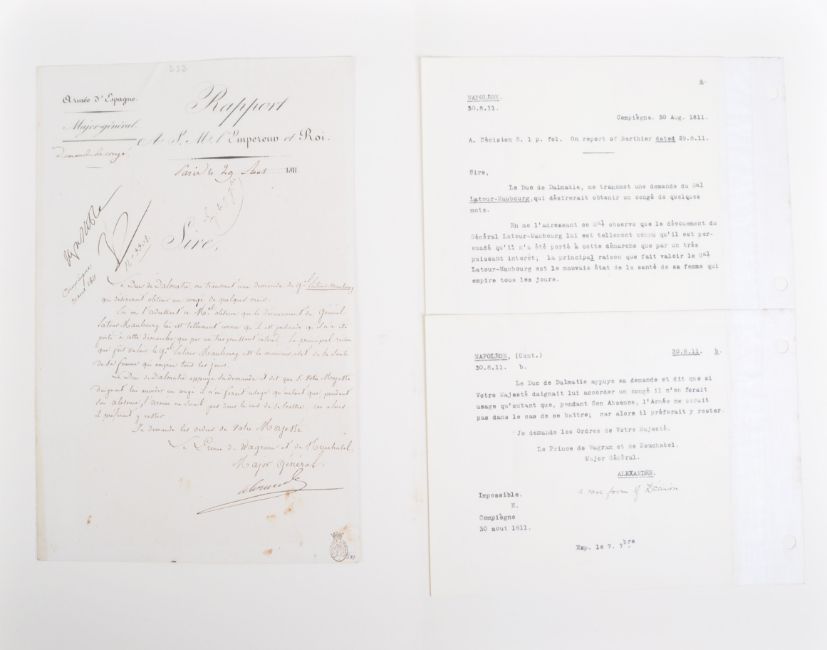 Armée d'Espagne.
Major-général
Demande de congé
Rapport
A S. M. l'Empereur et Roi.
Paris le 29 Août 1811
Sire,
Le Duc de Dalmatie me transmet une demande du Gal Latour-Maubourg
qui désirerait obtenir un congé de quelques mois.
En me l'adressant ce Mal observe que le dévouement du Général
Latour-Maubourg lui est tellement connu qu'il est persuadé qu'il n'a été
porté à cette démarche que par un très puissant intérêt; la principale raison
que fait valoir le Gal Latour-Maubourg est le mauvais état de la santé
de sa femme qui empire tous les jours.
Le Duc de Dalmatie appuye sa demande et dit que si Votre Majesté
daignait lui accorder un congé il n'en ferait usage qu'autant que, pendant
Son Absence, l'Armée ne serait pas dans le cas de se battre; car alors
il préferait y rester.
Je demande les ordres de Votre Majesté
Le Prince de Wagram et de Neuchatel,
Major Général
Alexandre
NAPOLEON.
30.8.11.
Compiègne, 30 Aug. 1811.
A. Décision S. 1 p. fol. On report of Berthier dated 29.8.11.
Sire,
Le Duc de Dalmatie, me transmet une demande du Gal
Latour-Maubourg, qui désirerait obtenir un congé de quelques
mois.
En me l'adressant ce Mal observe que le dévouement du
Général Latour-Maubourg lui est tellement connu qu'il est per-
suadé qu'il n'a été porté à cette démarche que par un très
puissant intérêt; la principal raison que fait valoir le Gal
Latour-Maubourg est le mauvais état de la santé de sa femme qui
empire tous les jours.
NAPOLÉON, (Cont.) 30.8.11. b.
30.8.11. b.
Le Duc de Dalmatie appuye sa demande et dit que si
Votre Majesté daignait lui accorder un congé il n'en ferait
usage qu'autant que, pendant Son Absence, l'Armée ne serait
pas dans le cas de se battre; car alors il préferait y rester.
Je demande les Ordres de Votre Majesté.
Le Prince de Wagram et de Neuchatel.
Major Général.
ALEXANDRE.
Impossible. a rare form of Décision
N.
Compiègne
30 aout 1811.
Exp. le 7. 7bre